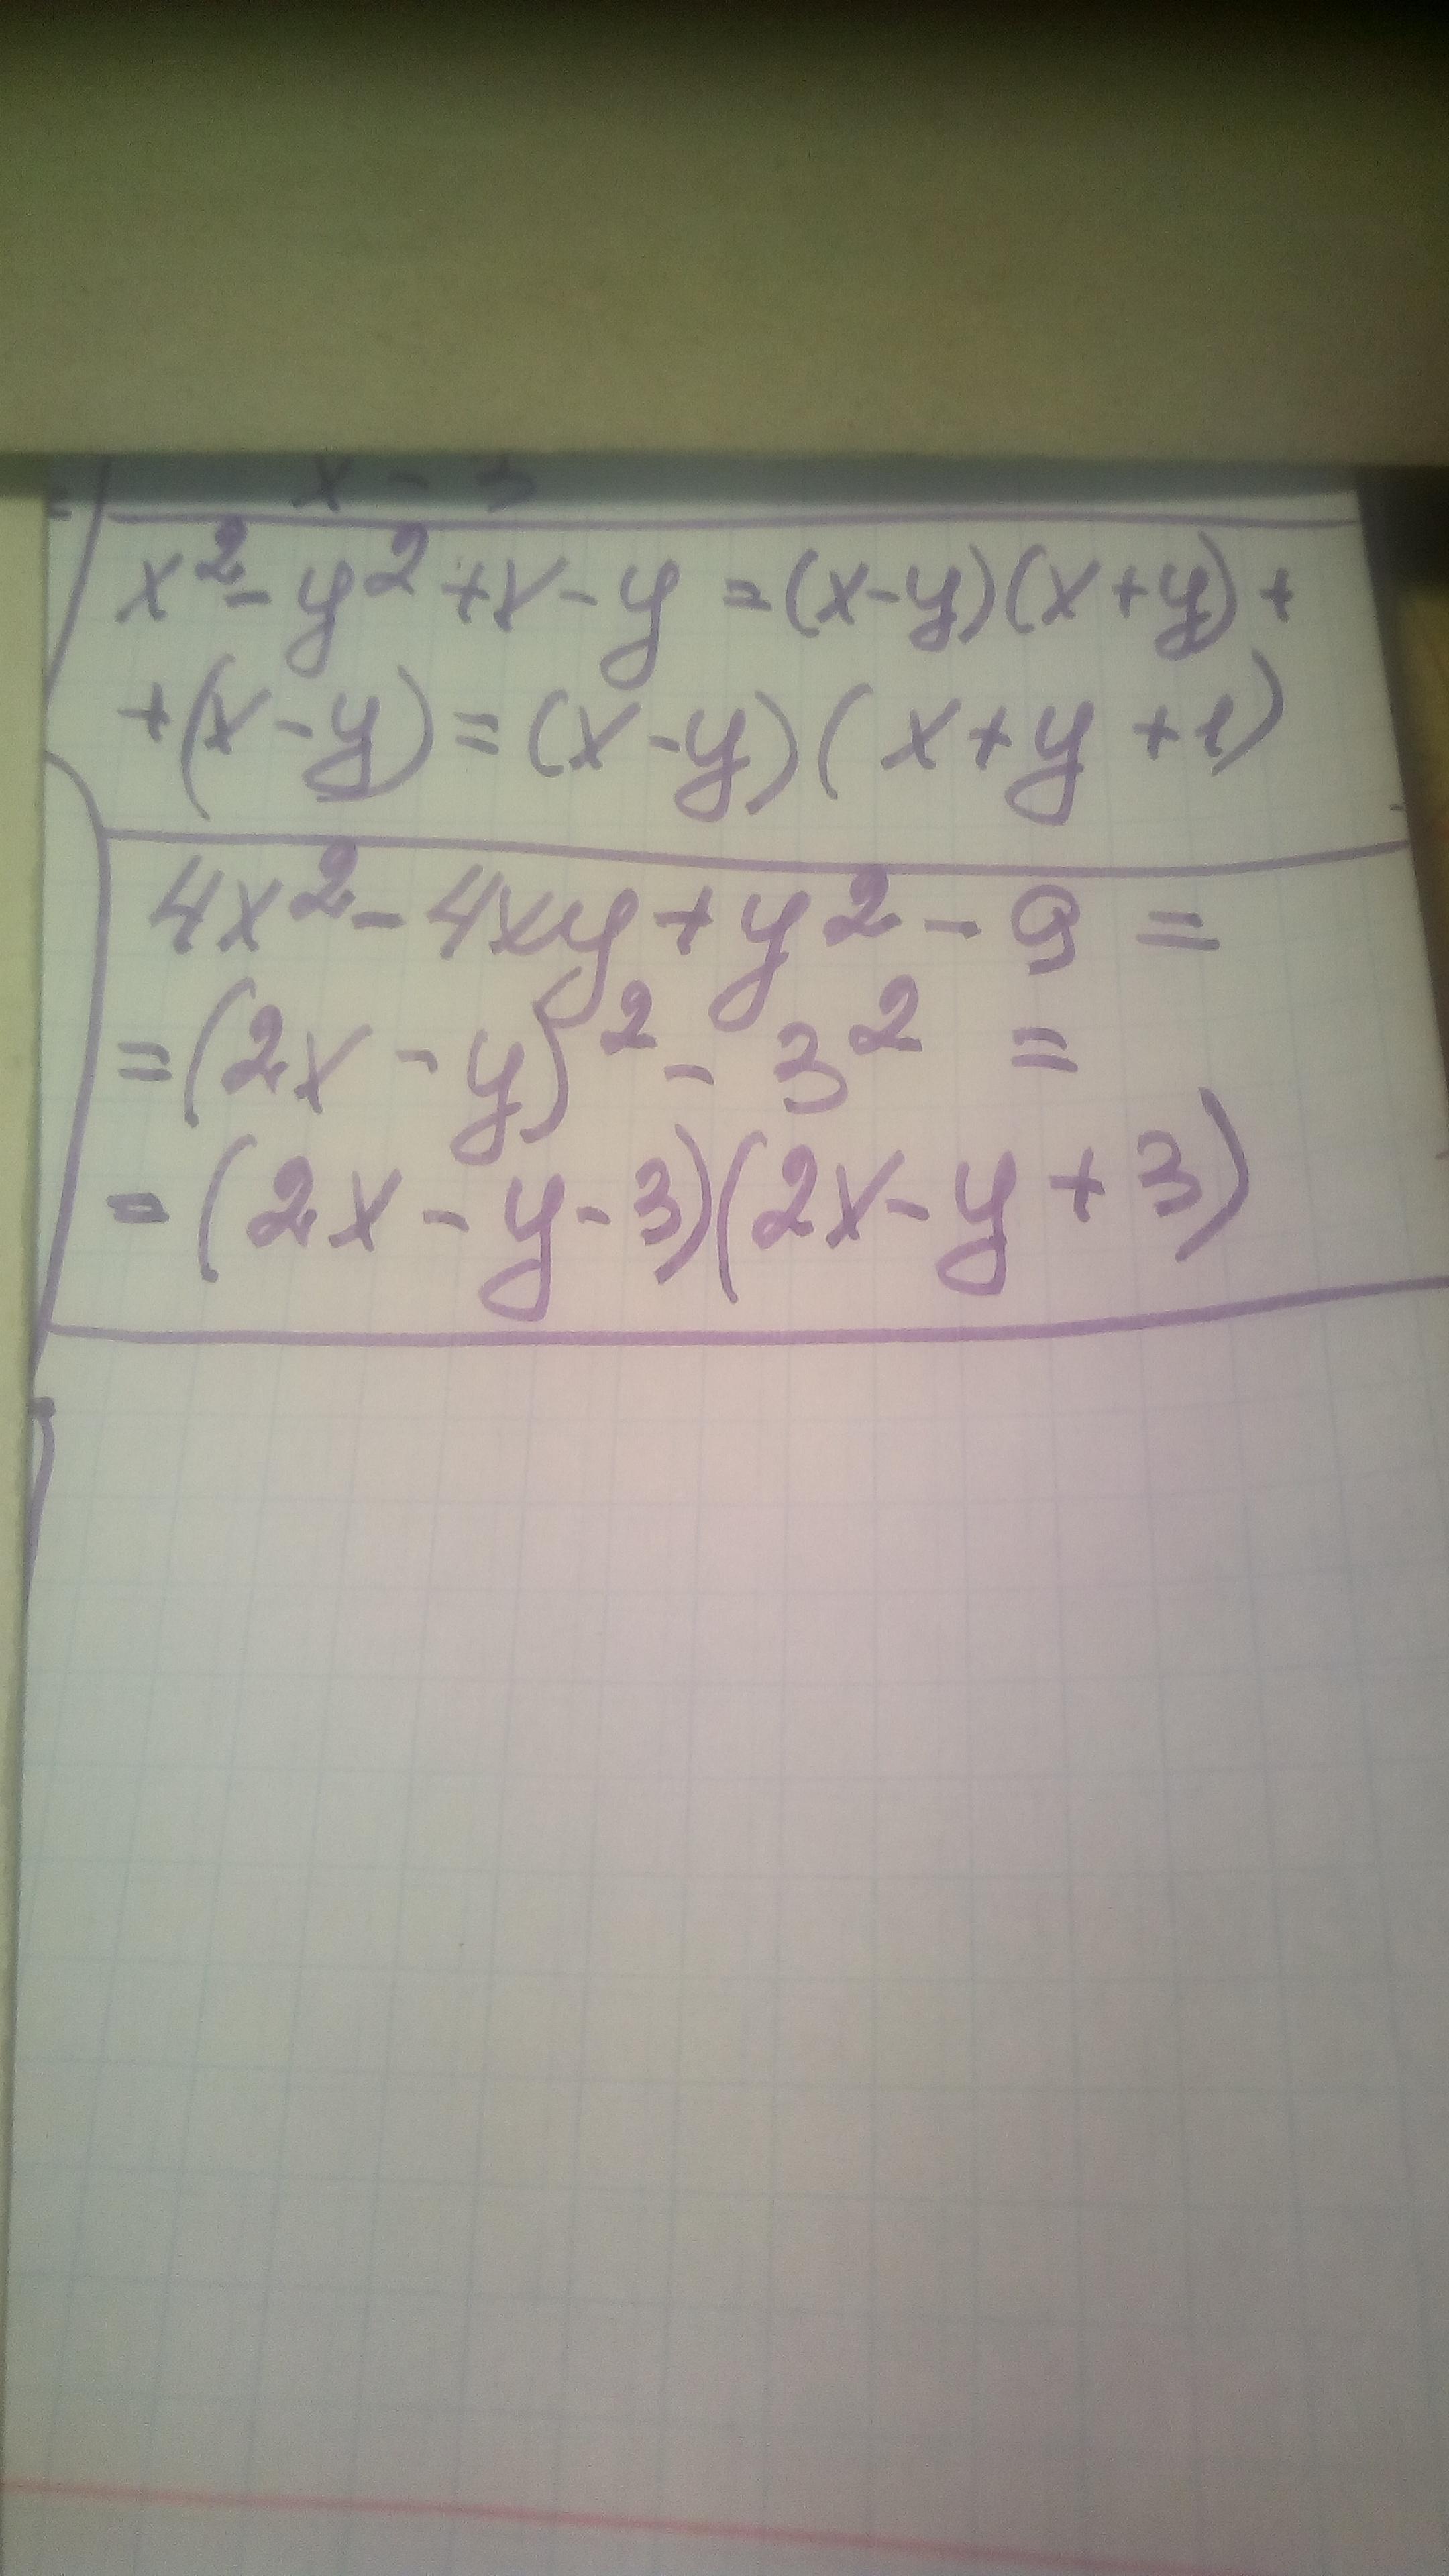 x - 3
x² - y² + x - y = (x-y)(x+y) +
+(x-y) = (x-y)(x+y+1)
4x² - 4xy + y² - 9 =
=(2x - y)² - 3² =
= (2x - y - 3)(2x - y + 3)